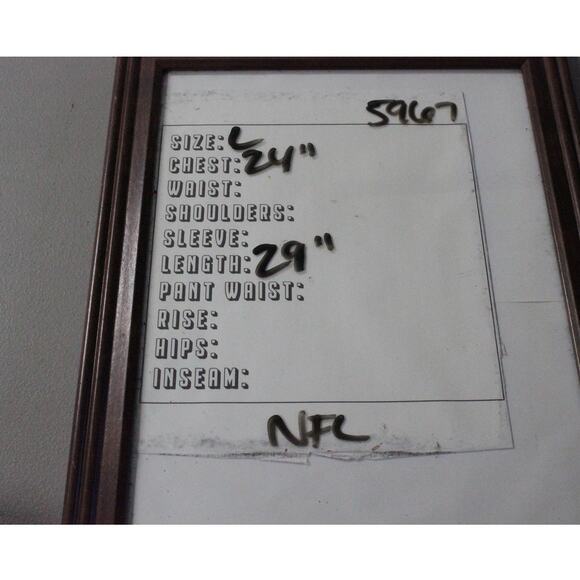 5967
SIZE: L
CHEST: 24"
WAIST:
SHOULDERS:
SLEEVE:
LENGTH: 29"
PANT WAIST:
RISE:
HIPS:
INSEAM:
NFL